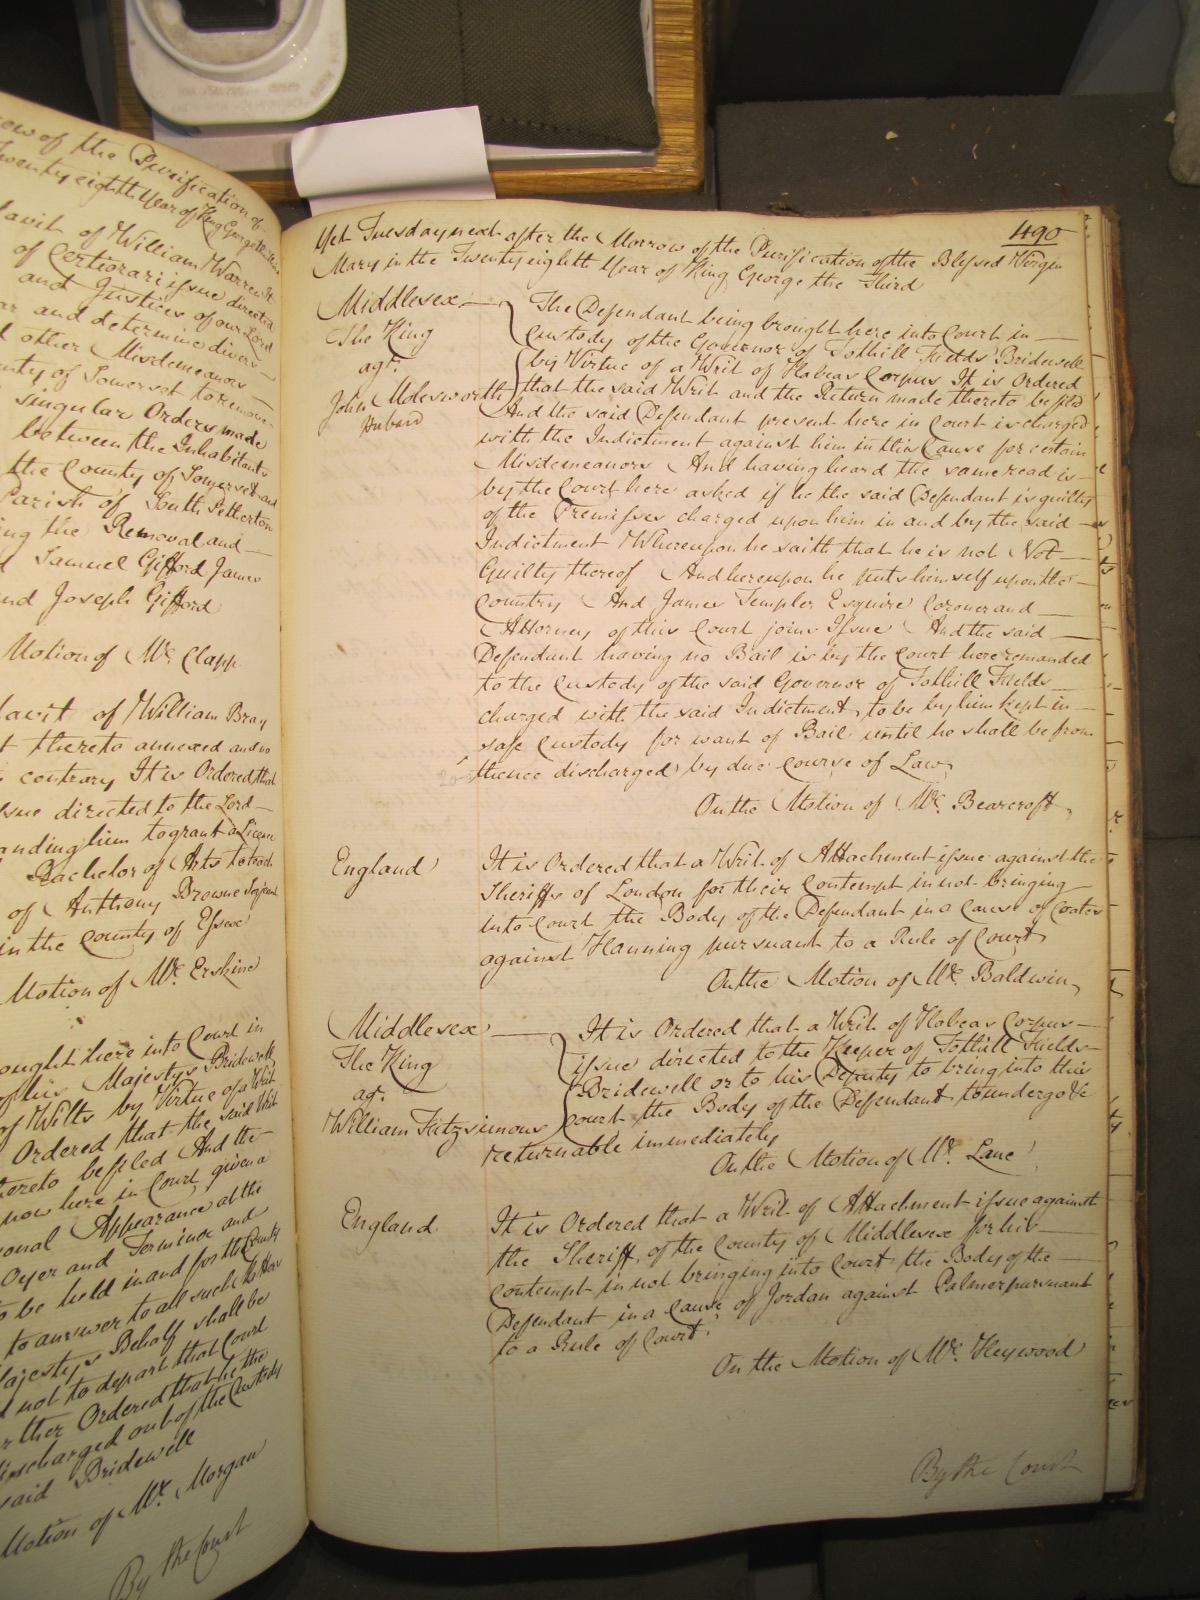 of the Purification of
Twenty eighth Year of King George the third
davit of William Warren
of Certiorari issue directed
and Justices of our Lord
ar and determine divers
d other Misdemeanors
unty of Somerset to remove
singular Orders made
between the Inhabitants
the County of Somerset and
Parish of South Petherton
ing the Removal and
d Samuel Gifford James
nd Joseph Gifford
Motion of Mr. Clapp
davit of William Bray
t thereto annexed and no
contrary It is Ordered that
ssue directed to the Lord
anding him to grant a Licence
Bachelor of Arts to teach
of Anthony Browne
in the County of Essex
Motion of Mr. Erskine
ought here into Court in
of his Majestys Bridewell
of Wilts by Virtue of a Writ
Ordered that the said Writ
ereto be filed And the
now here in Court given a
sonal Appearance at the
Oyer and Terminer and
to be held in and for the County
to answer to all such
ajestys Behalf shall be
d not to depart that Court
rther Ordered that he the
discharged out of the Custody
said Bridewell
Motion of Mr. Morgan
By the Court
490
Yet Tuesday next after the Morrow of the Purification of the Blessed Virgin
Mary in the Twenty eighth Year of King George the Third
Middlesex The Defendant being brought here into Court in
The King Custody of the Governor of Tothill Fields Bridewell
agt. by Virtue of a Writ of Habeas Corpus It is Ordered
John Molesworth that the said Writ and the Return made thereto be filed
Hubard And the said Defendant present here in Court is charged
with the Indictment against him in this Cause for certain
Misdemeanors And having heard the same read is
by the Court here asked if he the said Defendant is guilty
of the Premisses charged upon him in and by the said
Indictment Whereupon he saith that he is not Not
Guilty thereof And hereupon he puts himself upon the
Country And James Templer Esquire Coroner and
Attorney of this Court joins Issue And the said
Defendant having no Bail is by the Court here remanded
to the Custody of the said Governor of Tothill Fields
charged with the said Indictment to be by him kept in
safe Custody for want of Bail until he shall be from
thence discharged by due course of Law
On the Motion of Mr. Bearcroft
England It is Ordered that a Writ of Attachment issue against the
Sheriffs of London for their Contempt in not bringing
into Court the Body of the Defendant in a Cause of Coates
against Hanning pursuant to a Rule of Court
On the Motion of Mr. Baldwin
Middlesex It is Ordered that a Writ of Habeas Corpus
The King issue directed to the Keeper of Tothill Fields
agt. Bridewell or to his Deputy to bring into this
William Fitzsimons Court the Body of the Defendant to undergo &c
returnable immediately
On the Motion of Mr. Lane
England It is Ordered that a Writ of Attachment issue against
the Sheriff of the County of Middlesex for his
Contempt in not bringing into Court the Body of the
Defendant in a Cause of Jordan against Palmer pursuant
to a Rule of Court
On the Motion of Mr. Heywood
By the Court